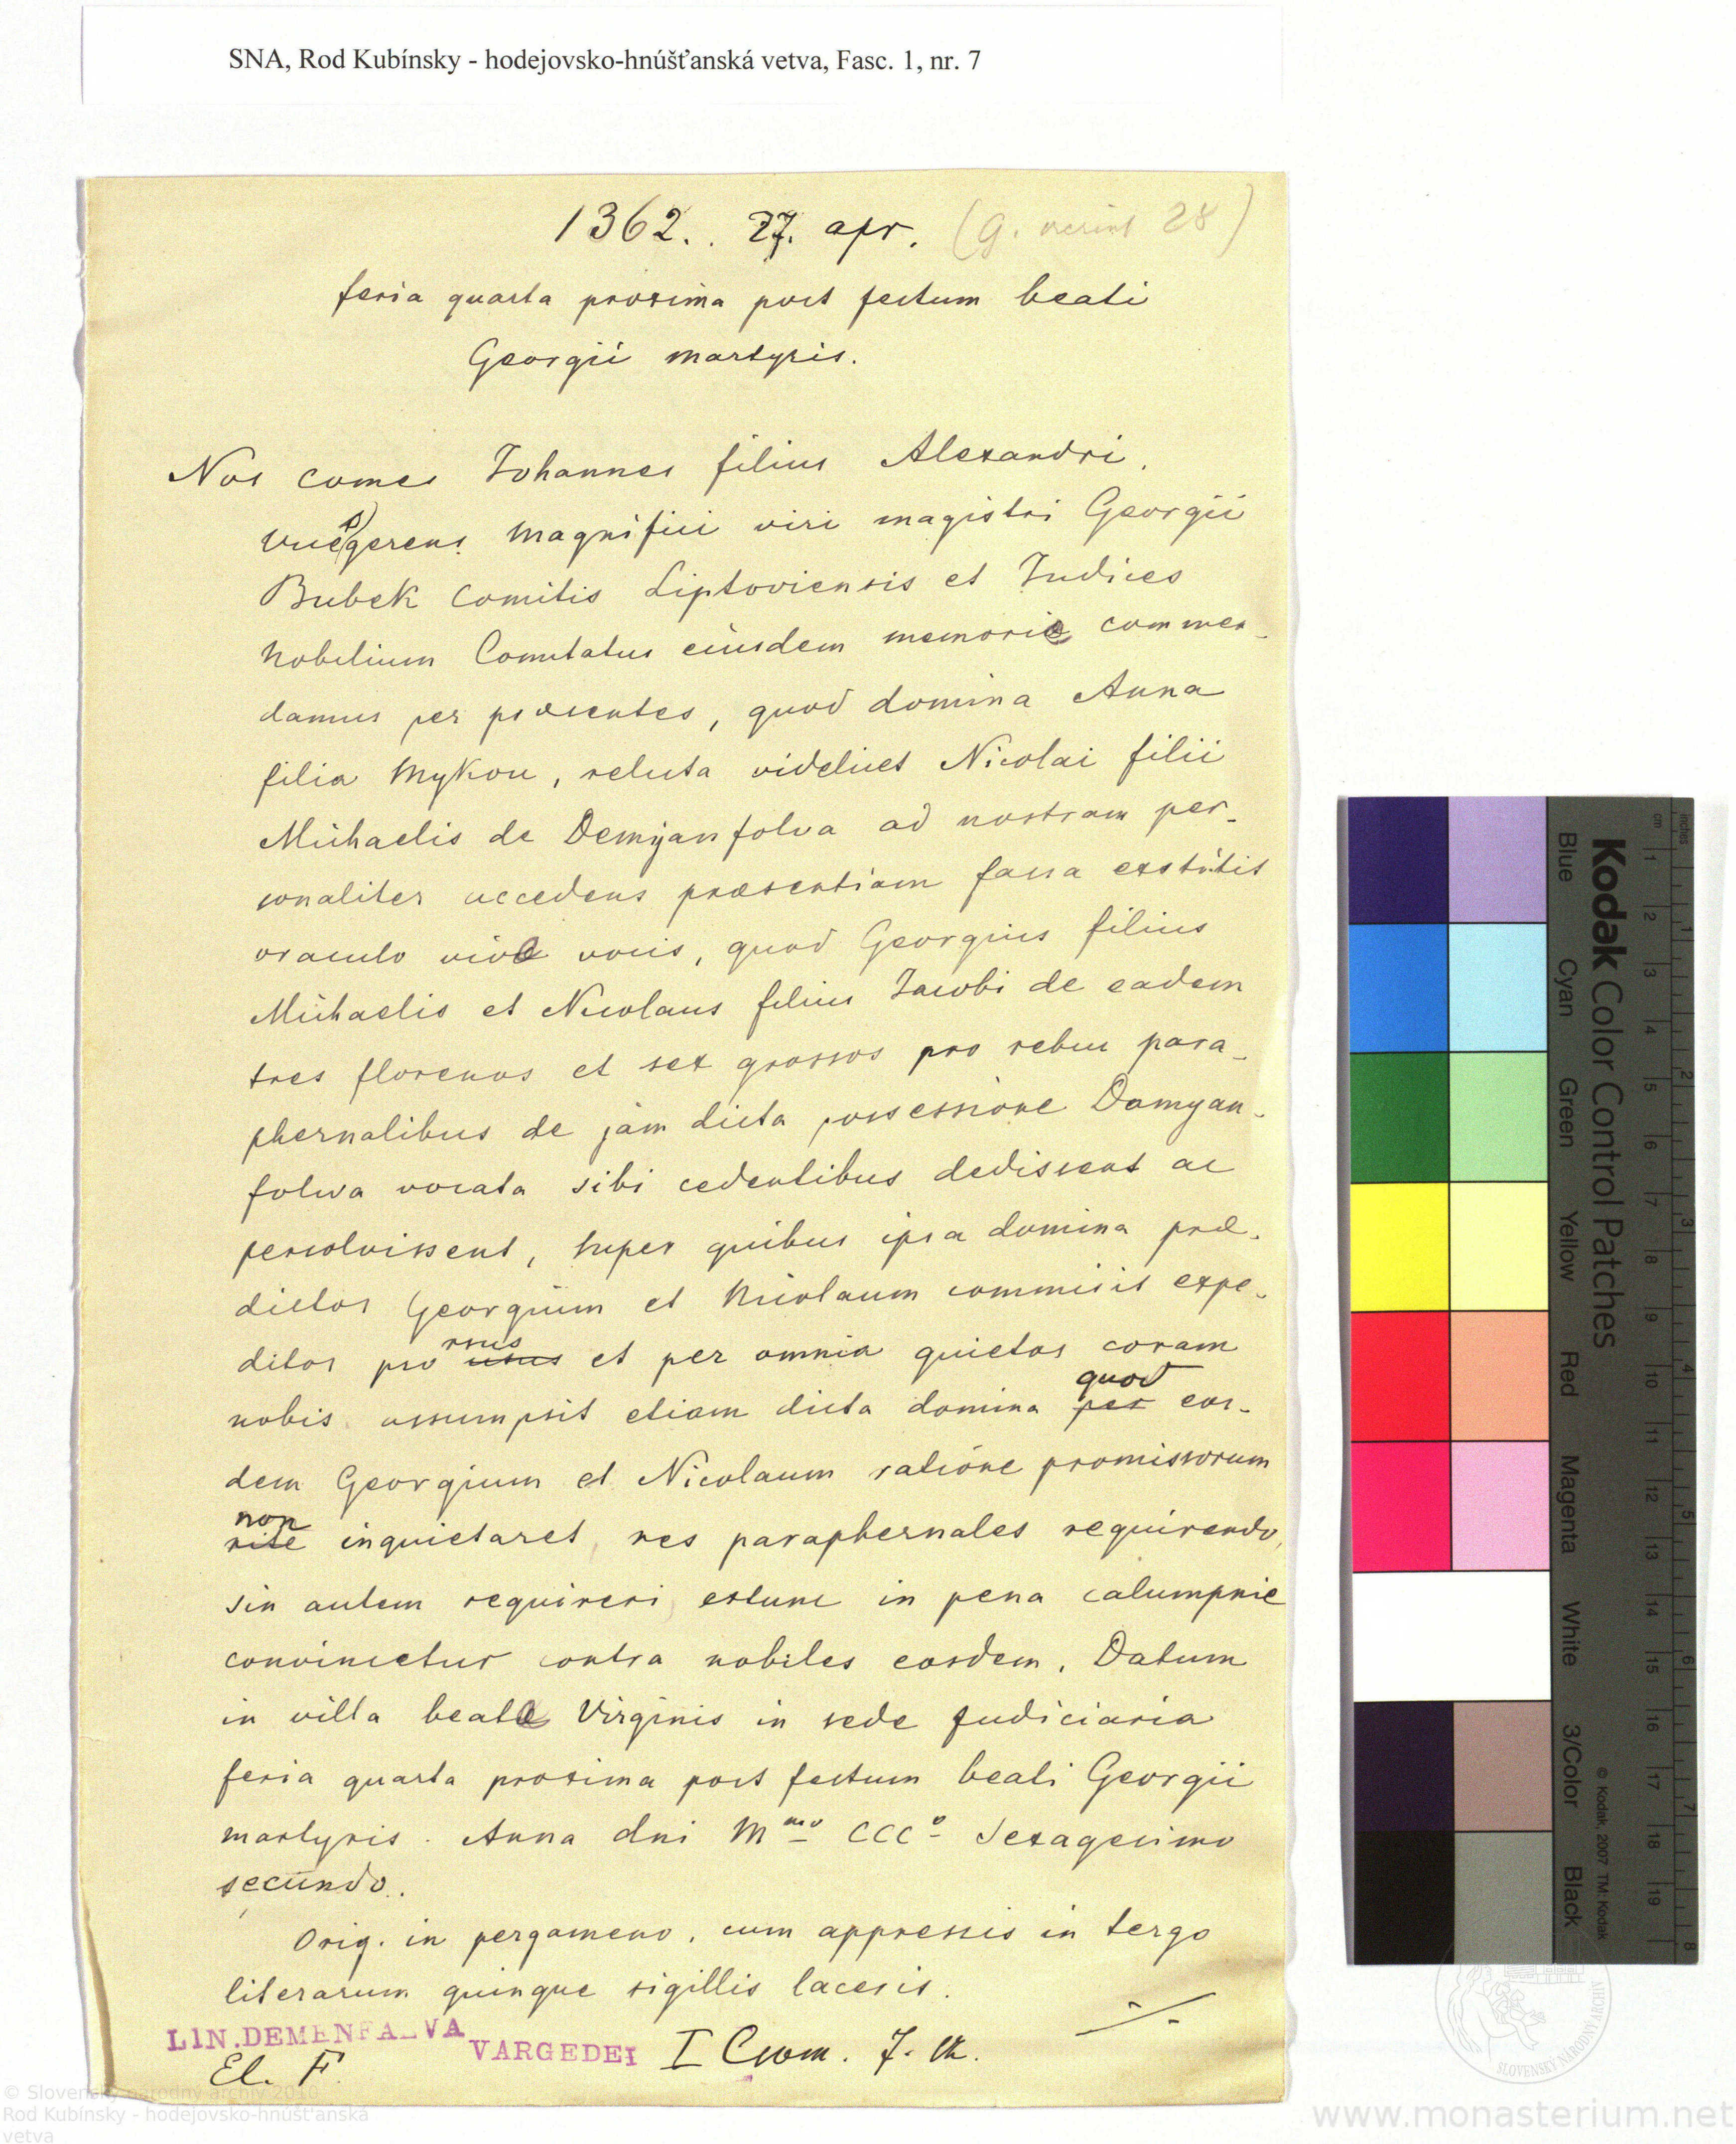 SNA, Rod Kubínsky - hodejovsko-hnúšťanská vetva, Fasc. 1, nr. 7
1362.. 27. apr. (g. szerint 28)
feria quarta proxima post festum beati
Georgii martyris.
Nos comes Johannes filius Alexandri,
vicegerens magnifici viri magistri Georgii
Bubek Comitis Liptoviensis et Judices
nobilium Comitatus eiusdem memorie commen-
damus per præsentes, quod domina Anna
filia Mykou, relicta videlicet Nicolai filii
Michaelis de Demyanfolva ad nostram per-
sonaliter accedens præsentiam fassa exstitit
oraculo vive vocis, quod Georgius filius
Michaelis et Nicolaus filius Jacobi de eadem
tres florenos et sex grossos pro rebus para-
phernalibus de jam dicta possessione Damyan-
folwa vocata sibi cedentibus dedissent ac
persolvissent, super quibus ipsa domina præ-
dictos Georgium et Nicolaum commisit expe-
rsus
ditos pro usus et per omnia quietos coram
quod
nobis assumpsit etiam dicta domina per eos-
dem Georgium et Nicolaum ratione promissorum
non
rite inquietaret, res paraphernales requirendo,
sin autem requireri, extunc in pena calumpnie
convincetur contra nobiles eosdem. Datum
in villa beate Virginis in sede judiciaria
feria quarta proxima post festum beati Georgii
martyris. Anna dni Mmo CCCo Sexagesimo
secundo.
Orig. in pergameno, cum appressis in tergo
literarum quinque sigillis laceris.
LIN.DEMENFALVA
VARGEDEI I Csom. 7. sz.
El. F.
Kodak Color Control Patches
© Kodak, 2007 TM: Kodak
Blue Cyan Green Yellow Red Magenta White 3/Color Black
inches 1 2 3 4 5 6 7 8
cm 1 2 3 4 5 6 7 8 9 10 11 12 13 14 15 16 17 18 19
SLOVENSKÝ NÁRODNÝ ARCHÍV
© Slovenský národný archív 2010
Rod Kubínsky - hodejovsko-hnúšťanská
vetva
www.monasterium.net